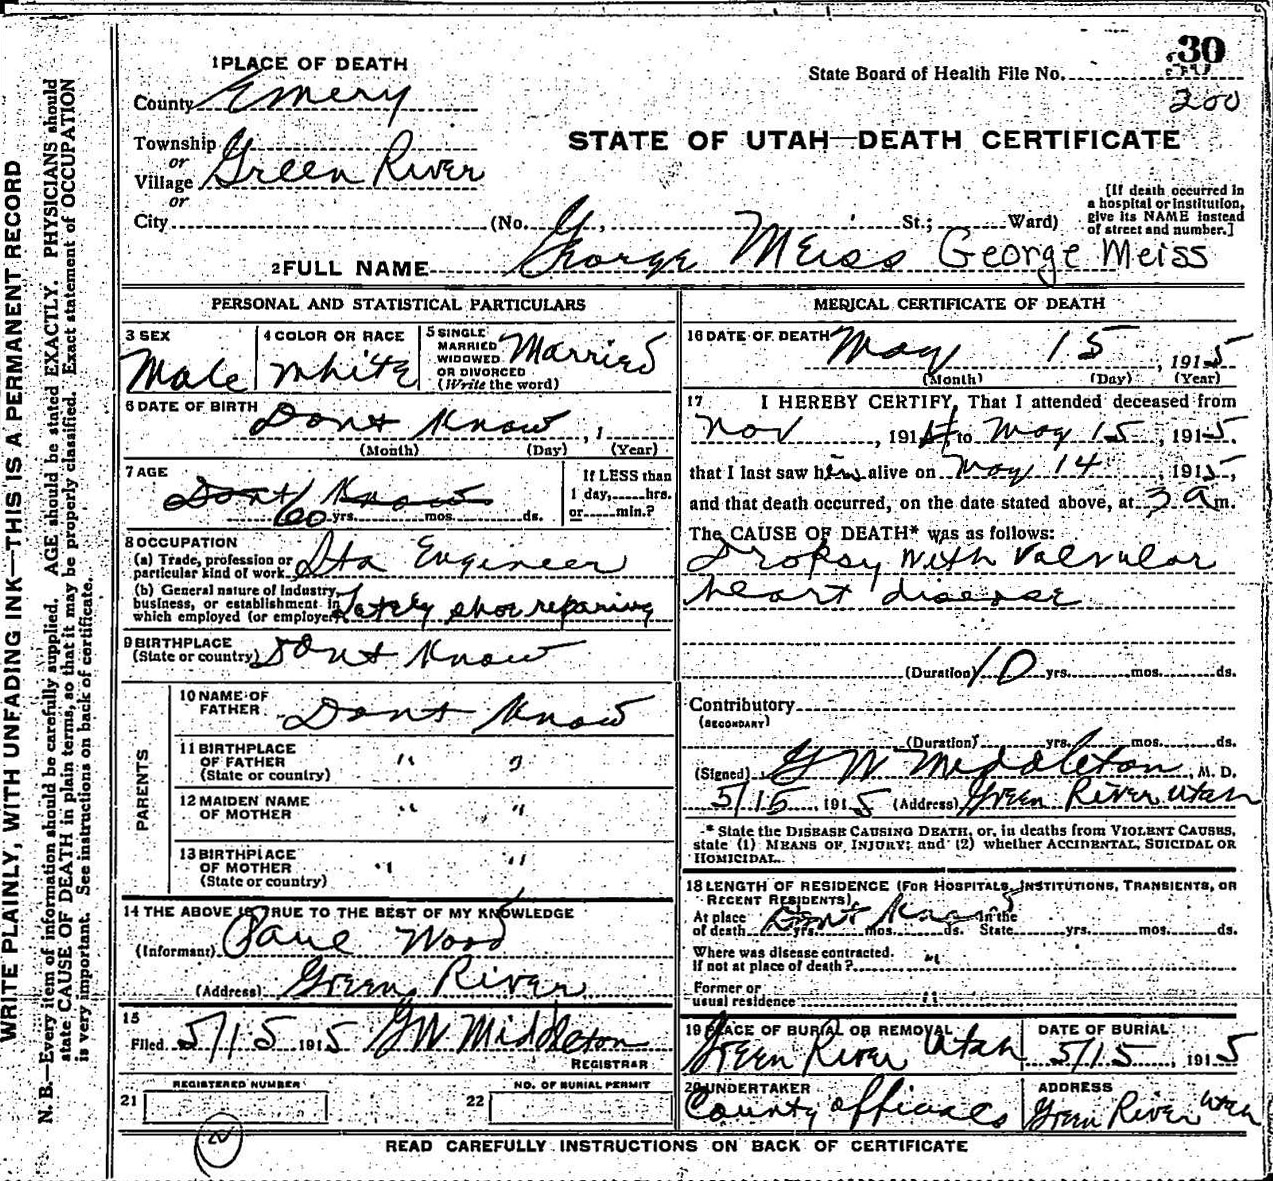 WRITE PLAINLY, WITH UNFADING INK—THIS IS A PERMANENT RECORD
N. B.—Every item of information should be carefully supplied. AGE should be stated EXACTLY. PHYSICIANS should
state CAUSE OF DEATH in plain terms, so that it may be properly classified. Exact statement of OCCUPATION
is very important. See instructions on back of certificate.
1 PLACE OF DEATH
County Emery
Township
or
Village Green River
or
City (No. , St.; Ward)
30
State Board of Health File No.
200
STATE OF UTAH—DEATH CERTIFICATE
[If death occurred in
a hospital or institution,
give its NAME instead
of street and number.]
2 FULL NAME George Meiss George Meiss
PERSONAL AND STATISTICAL PARTICULARS
3 SEX
Male
4 COLOR OR RACE
White
5 SINGLE
MARRIED
WIDOWED
OR DIVORCED
(Write the word)
Married
6 DATE OF BIRTH Dont Know , 1
(Month) (Day) (Year)
7 AGE
Dont Know
60 yrs. mos. ds.
If LESS than
1 day, hrs.
or min.?
8 OCCUPATION
(a) Trade, profession or
particular kind of work Sta Engineer
(b) General nature of Industry,
business, or establishment in
which employed (or employer) Lately shoe reparing
9 BIRTHPLACE
(State or country) Dont Know
PARENTS
10 NAME OF
FATHER Dont Know
11 BIRTHPLACE
OF FATHER
(State or country) " "
12 MAIDEN NAME
OF MOTHER " "
13 BIRTHPLACE
OF MOTHER
(State or country) " "
14 THE ABOVE IS TRUE TO THE BEST OF MY KNOWLEDGE
(Informant) Wood
(Address) Green River
15
Filed 5/15 1915 GW Middleton
REGISTRAR
REGISTERED NUMBER
21
NO. OF BURIAL PERMIT
22
2
MEDICAL CERTIFICATE OF DEATH
16 DATE OF DEATH May 15 , 1915
(Month) (Day) (Year)
17 I HEREBY CERTIFY, That I attended deceased from
Nov , 1914 to May 15 , 1915.
that I last saw him alive on May 14 1915,
and that death occurred, on the date stated above, at 3 a m.
The CAUSE OF DEATH* was as follows:
Dropsy with Valvular
heart disease
(Duration) 10 yrs. mos. ds.
Contributory
(SECONDARY)
(Duration) yrs. mos. ds.
(Signed) G W Middleton, M. D.
5/15 1915 (Address) Green River Utah
* State the DISEASE CAUSING DEATH, or, in deaths from VIOLENT CAUSES,
state (1) MEANS OF INJURY; and (2) whether ACCIDENTAL, SUICIDAL OR
HOMICIDAL.
18 LENGTH OF RESIDENCE (FOR HOSPITALS, INSTITUTIONS, TRANSIENTS, OR
RECENT RESIDENTS)
At place Dont Know In the
of death yrs. mos. ds. State yrs. mos. ds.
Where was disease contracted.
if not at place of death? "
Former or
usual residence "
19 PLACE OF BURIAL OR REMOVAL
Green River Utah
DATE OF BURIAL
5/15, 1915
20 UNDERTAKER
County officials
ADDRESS
Green River Utah
READ CAREFULLY INSTRUCTIONS ON BACK OF CERTIFICATE